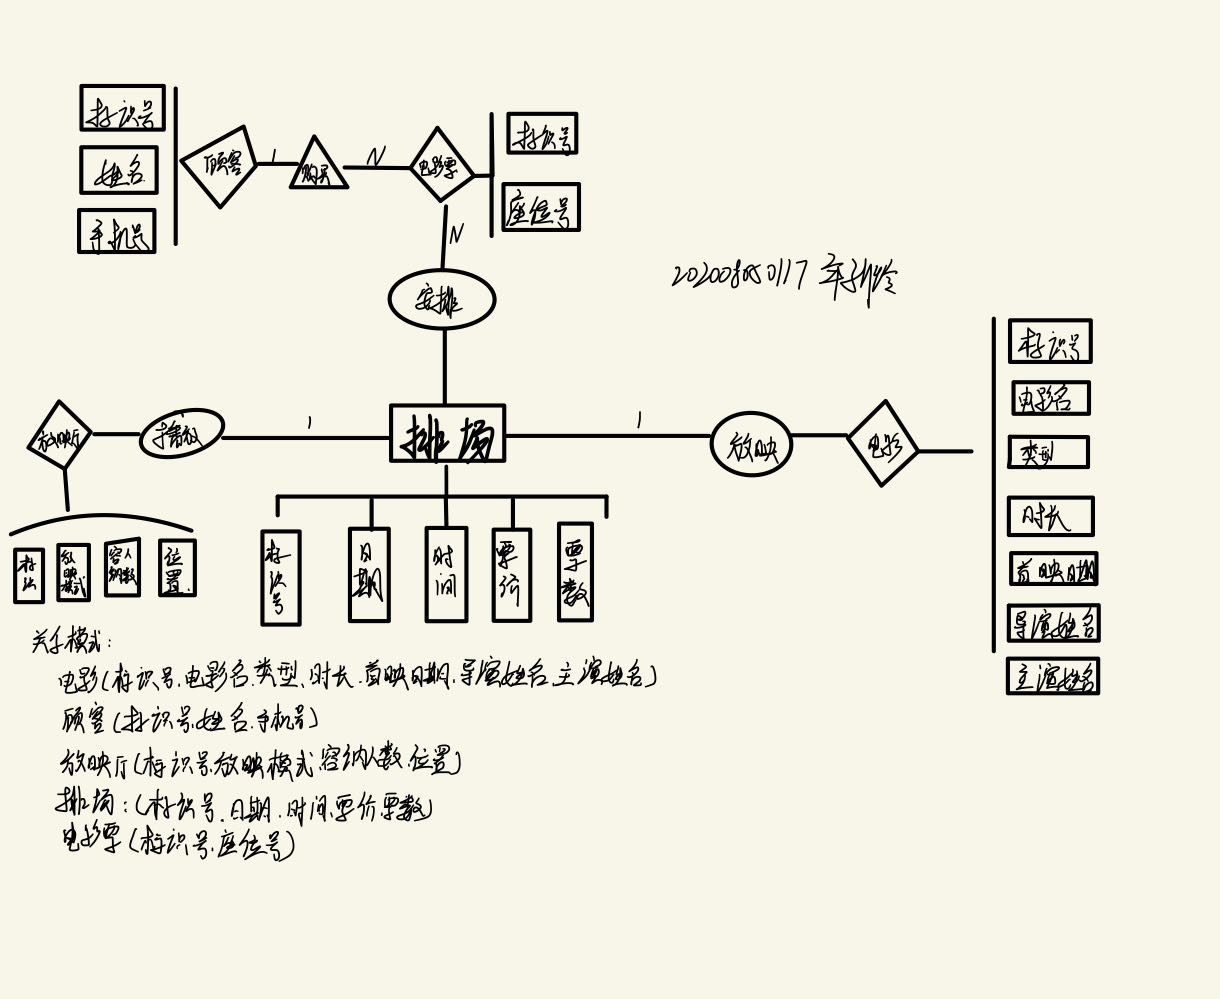 标识号
姓名
手机号
顾客
1
购买
N
电影票
标识号
座位号
N
安排
20200850117
标识号
电影名
类型
时长
首映日期
导演姓名
主演姓名
放映厅
播放
1
排场
1
放映
电影
标识
放映模式
容纳人数
位置
标识号
日期
时间
票价
票数
关系模式:
电影(标识号.电影名.类型、时长.首映日期.导演姓名.主演姓名)
顾客(标识号.姓名.手机号)
放映厅(标识号.放映模式.容纳人数.位置)
排场:(标识号.日期.时间.票价.票数)
电影票(标识号.座位号)